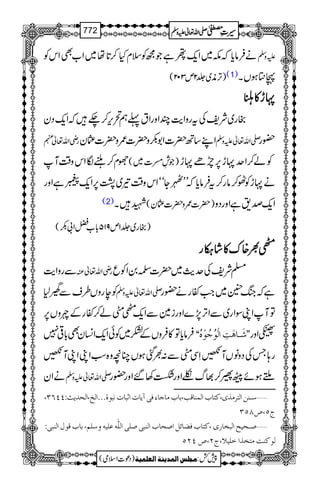 سیرتِ مصطفیٰ صلی اللہ تعالیٰ علیہ وسلم 772
علیہ وسلم نے فرمایا کہ مکہ میں ایک پتھر ہے جو مجھ کو سلام کیا کرتا تھا میں اب بھی اس کو
پہچانتا ہوں۔(1) (ترمذی جلد ۲ ص ۲۰۳)
پہاڑ کا ہلنا
بخاری شریف کی یہ روایت چند اوراق پہلے ہم تحریر کر چکے ہیں کہ ایک دن
حضور صلی اللہ تعالیٰ علیہ وسلم اپنے ساتھ حضرت ابوبکر و حضرت عمر و حضرت عثمان رضی اللہ تعالیٰ عنہم
کو لے کر احد پہاڑ پر چڑھے پہاڑ (جوشِ مسرت میں) جھوم کر ہلنے لگا اس وقت آپ
نے پہاڑ کو ٹھوکر مار کر یہ فرمایا کہ ’’ٹھہر جا‘‘ اس وقت تیری پشت پر ایک پیغمبر ہے اور
ایک صدیق ہے اور دو (حضرت عمر و حضرت عثمان) شہید ہیں۔ (2)
(بخاری جلد ۱ ص ۵۱۹ باب فضل ابی بکر)
مٹھی بھر خاک کا شاہکار
مسلم شریف کی حدیث میں حضرت سلمہ بن اکوع رضی اللہ تعالیٰ عنہ سے روایت
ہے کہ جنگ حنین میں جب کفار نے حضور صلی اللہ تعالیٰ علیہ وسلم کو چاروں طرف سے گھیر لیا
تو آپ اپنی سواری سے اتر پڑے اور زمین سے ایک مٹھی مٹی لے کر کفار کے چہروں پر
پھینکی اور ’’شَاهَتِ الْوُجُوْهُ‘‘ فرمایا تو کافروں کے لشکر میں کوئی ایک انسان بھی باقی نہیں
رہا جس کی دونوں آنکھیں اس مٹی سے نہ بھر گئی ہوں چنانچہ وہ سب اپنی اپنی آنکھیں
ملتے ہوئے پیٹھ پھیر کر بھاگ نکلے اور شکست کھا گئے اور حضور صلی اللہ تعالیٰ علیہ وسلم نے ان
سنن الترمذی،کتاب المناقب،باب ماجاء فی آیات اثبات نبوۃ...الخ،الحدیث:۳۶۴۴،
ج۵،ص۳۵۸
صحیح البخاری ،کتاب فضائل اصحاب النبی صلی اللہ علیہ وسلم، باب قول النبی:
لو کنت متخذا خلیلا،ج۲،ص ۵۲۴
پیش کش: مجلس المدینۃ العلمیۃ (دعوتِ اسلامی)